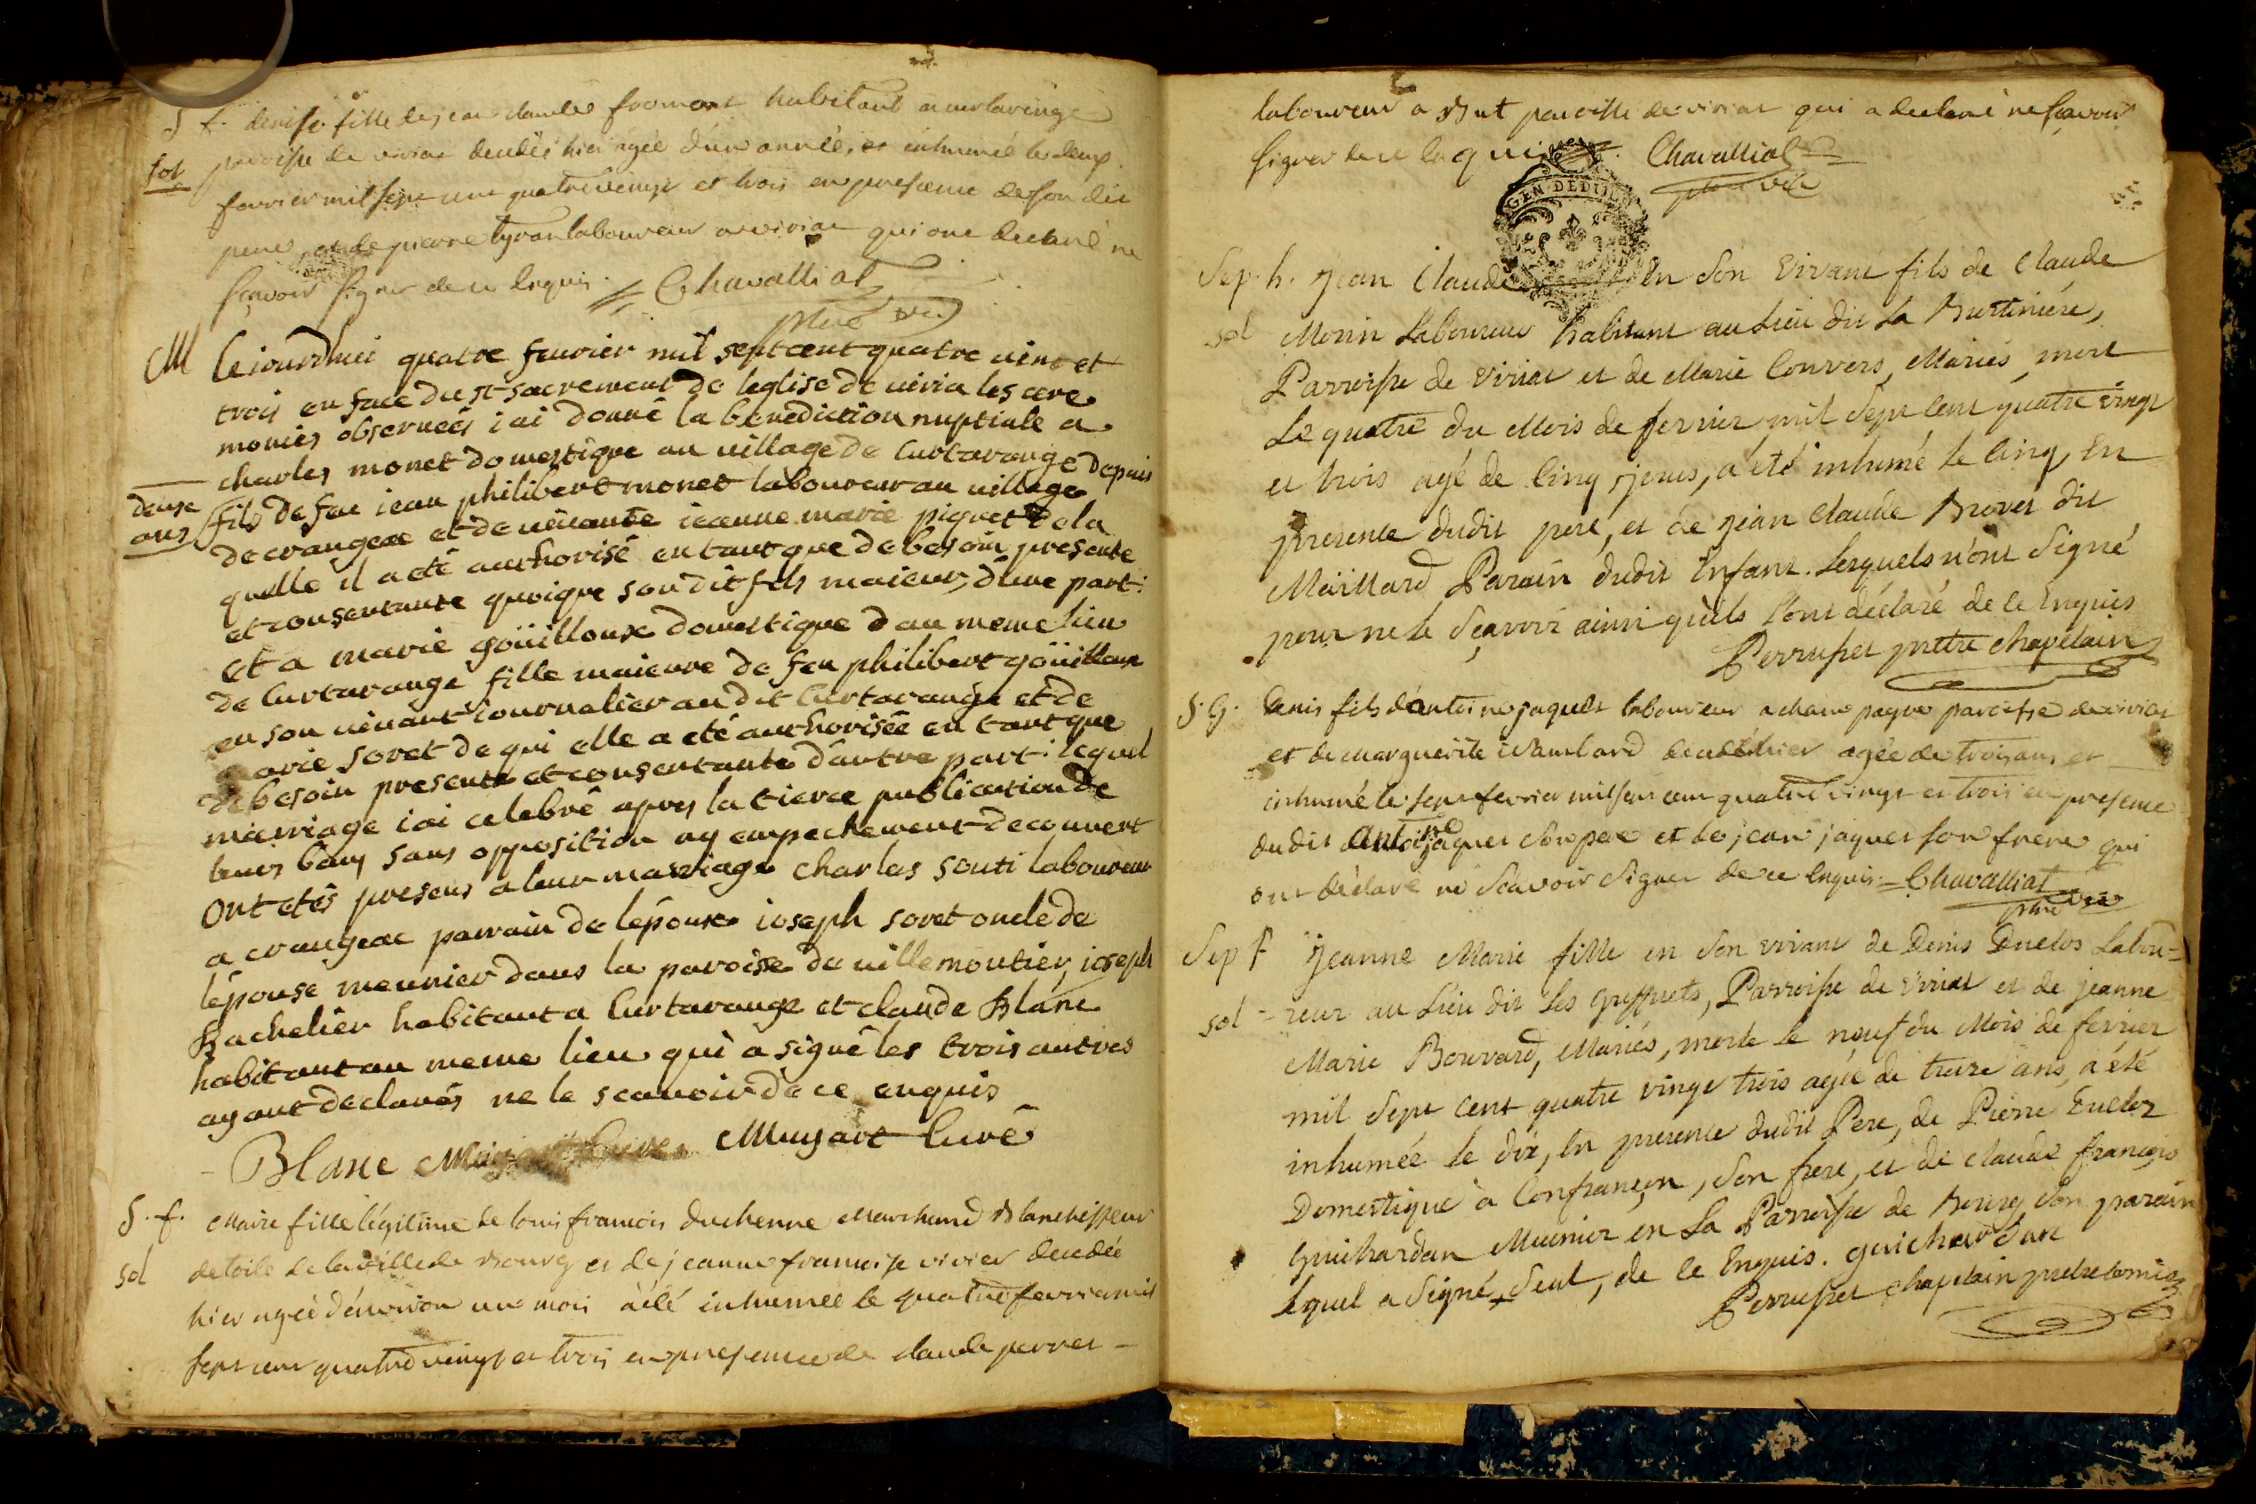 S f. denise fille de jean claude fromont habitant a curtaringe
sol paroisse de viriat decedée hier agée d'une année, et inhumée le deux
fevrier mil sept cent quatre vingt et trois en presence de son dit
pere, et de pierre tyvan laboureur a viriat qui ont declaré ne
sçavoir signer de ce enquis. Chavalliat
ptre vic
M Cejourdhui quatre feurier mil sept cent quatre uint et
trois en face du st sacrement de leglise de uiria les cere
monies obseruées iai donné la benediction nuptiale a
charles monet domestique au uillage de Curtarange depuis
deuse
ans fils de feu iean philibert monet laboureur au uillage
de crangeac et de uiuante ieanne marie piquet de la
quelle il a eté authorisé en tant que de besoin presente
et consentante quoique son dit fils maieur, d'une part:
et a marie goüilloux domestique d au meme lieu
de Curtarange fille maieure de feu philibert goüilloux
en son uiuant iournalier au dit Curtarange et de
marie soret de qui elle a eté authorisée en tant que
de besoin presente et consentante d'autre part: lequel
marriage iai celebré apres la tierce publication de
leurs bans sans opposition ny empechement decouuert
Ont etés presens a leur marriage charles souti laboureur
a crangeac parrain de lépouse ioseph soret oncle de
lépouse meunier dans la paroisse de uillemoutier, ioseph
Bachelier habitant a Curtarange et claude Blanc
habitant au meme lieu qui a signé les trois autres
ayant declarés ne le scauoir de ce enquis
Blanc Muyart Curé
S. f. Marie fille légitime de louis francois duchenne marchand Blanchisseur
sol de toile de la ville de Bourg et de jeanne françoise vivier decedée
hier agée d'environ un mois a été inhumée le quatre fevrier mil
sept cent quatre vingt et trois en presence de claude perret
laboureur a But paroisse de viriat qui a declaré ne sçavoir
signer de ce enquis. Chavalliat
ptre vic
GEN. DE DIJ
Sep. h. Jean Claude En Son Vivant fils de Claude
sol Morin Laboureur habitant au Lieu dit La Burtiniere,
Parroisse de Viriat et de Marie Convers, Mariés, mort
Le quatre du Mois de fevrier mil Sept Cent quatre vingt
et trois agé de Cinq jours, a été inhumé le Cinq, En
presence dudit pere, et de Jean Claude Brovet dit
Maillard Parain dudit Enfant. Lesquels n'ont Signé
pour ne le Sçavoir ainsi qu'ils l'ont déclaré de ce Enquis
Perrusset prêtre chapelain
S. G. Denis fils d'antoine jaquet laboureur a chamepagne paroisse de viriat
et de marguerite decedé hier agée de trois ans et
inhumé le sept fevrier mil sept cent quatre vingt et trois en presence
dudit antoine jaquet son pere et de jean jaquet son frere qui
ont déclaré ne Scavoir Signer de ce enquis. Chavalliat
ptre vic
Sep f Jeanne Marie fille en Son vivant de Denis Duclos Labou=
sol =reur au Lieu dit Les Greffets, Parroisse de Viriat et de jeanne
Marie Bouvard, Mariés, morte le neuf du Mois de fevrier
mil Sept Cent quatre vingt trois agée de treize ans, a été
inhumée le dix, En presence dudit Pere, de Pierre Duclos
Domestique à Confrançon, Son frere, et de Claude françois
Guichardan Meunier en La Parroisse de Bourg Son parain
lequel a Signé Seul, de ce Enquis. guichardan
Perrusset chapelain pretre commis